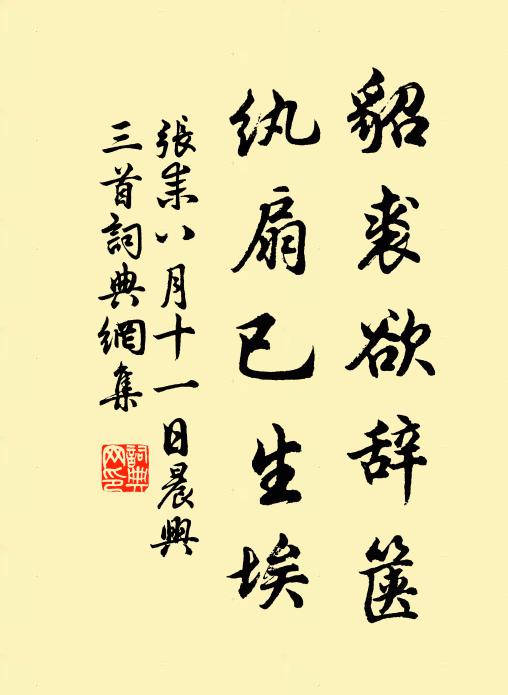 貂裘欲辞箧
纨扇已生埃
張耒八月十一日晨興
三首詞典網集
詞典网印